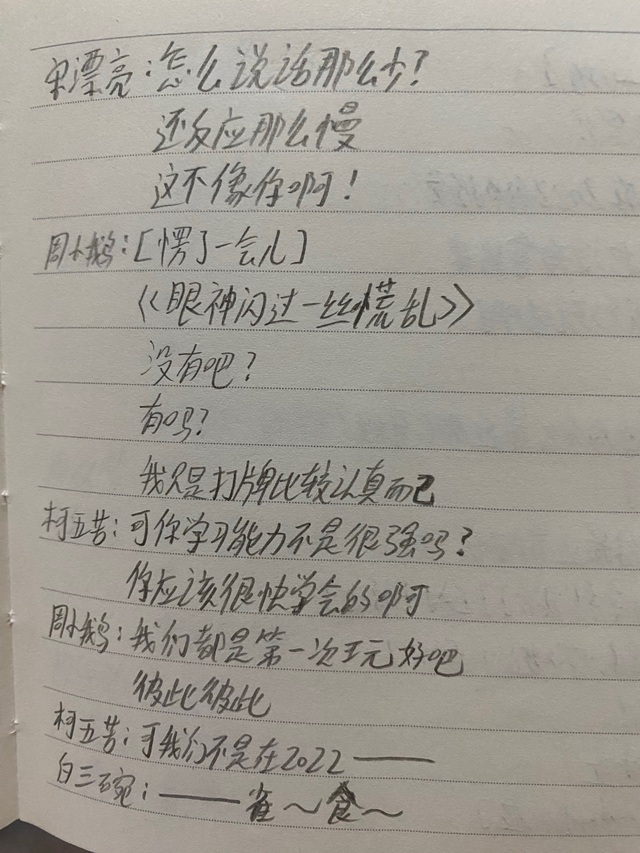 宋漂亮：怎么说话那么少？
还反应那么慢
这不像你啊！
周小鹅：[愣了一会儿]
《眼神闪过一丝慌乱》
没有吧？
有吗？
我只是打牌比较认真而已
柯五苦：可你学习能力不是很强吗？
你应该很快学会的啊
周小鹅：我们都是第一次玩好吧
彼此彼此
柯五苦：可我们不是在2022——
白三碗：——雀～食～